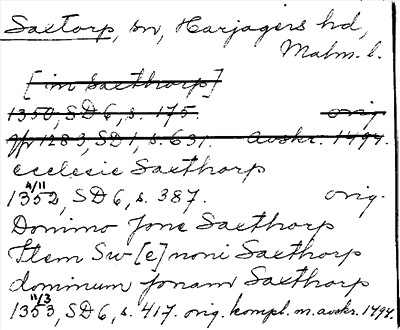 Saxtorp, sn, Harjagers hd,
Malm. l.
[in Saxthorp]
1350, SD 6, s. 175. orig
jfr 1283, SD 1, s. 631. avskr. 1494.
ecclesie Saxthorp
4/11
1352, SD 6, s. 387. orig.
Domino Jone Saxthorp
Item Sw[e]noni Saxthorp
dominum Jonam Saxthorp
11/3
1353, SD 6, s. 417. orig. kompl. m. avskr. 1494.